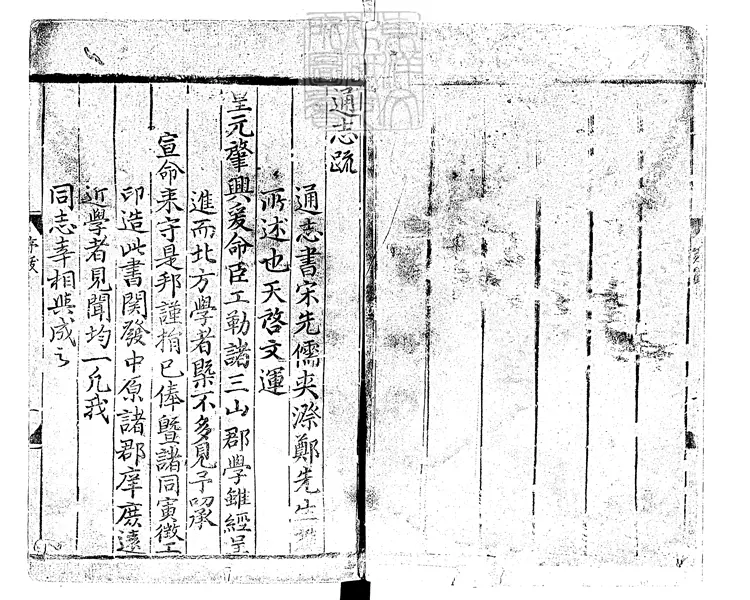 通志疏
通志書宋先儒夾漈鄭先生
所述也天啓文運
皇元肇興爰命臣工勒諸三山郡學雖經呈
進而北方學者槩不多見予叨承
宣命來守是邦謹捐已俸暨諸同寅徵工
印造此書関發中原諸郡庠庶遠
近學者見聞均一凢我
同志幸相與成之